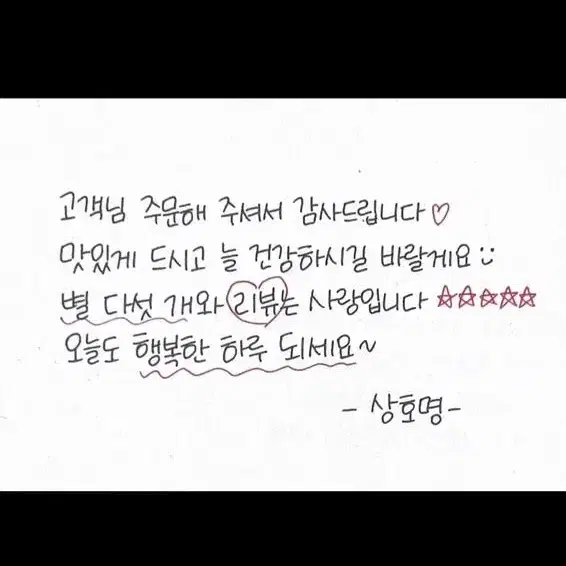 고객님 주문해 주셔서 감사드립니다♡
맛있게 드시고 늘 건강하시길 바랄게요:)
별 다섯 개와 리뷰는 사랑입니다 ☆☆☆☆☆
오늘도 행복한 하루 되세요~
- 상호명 -